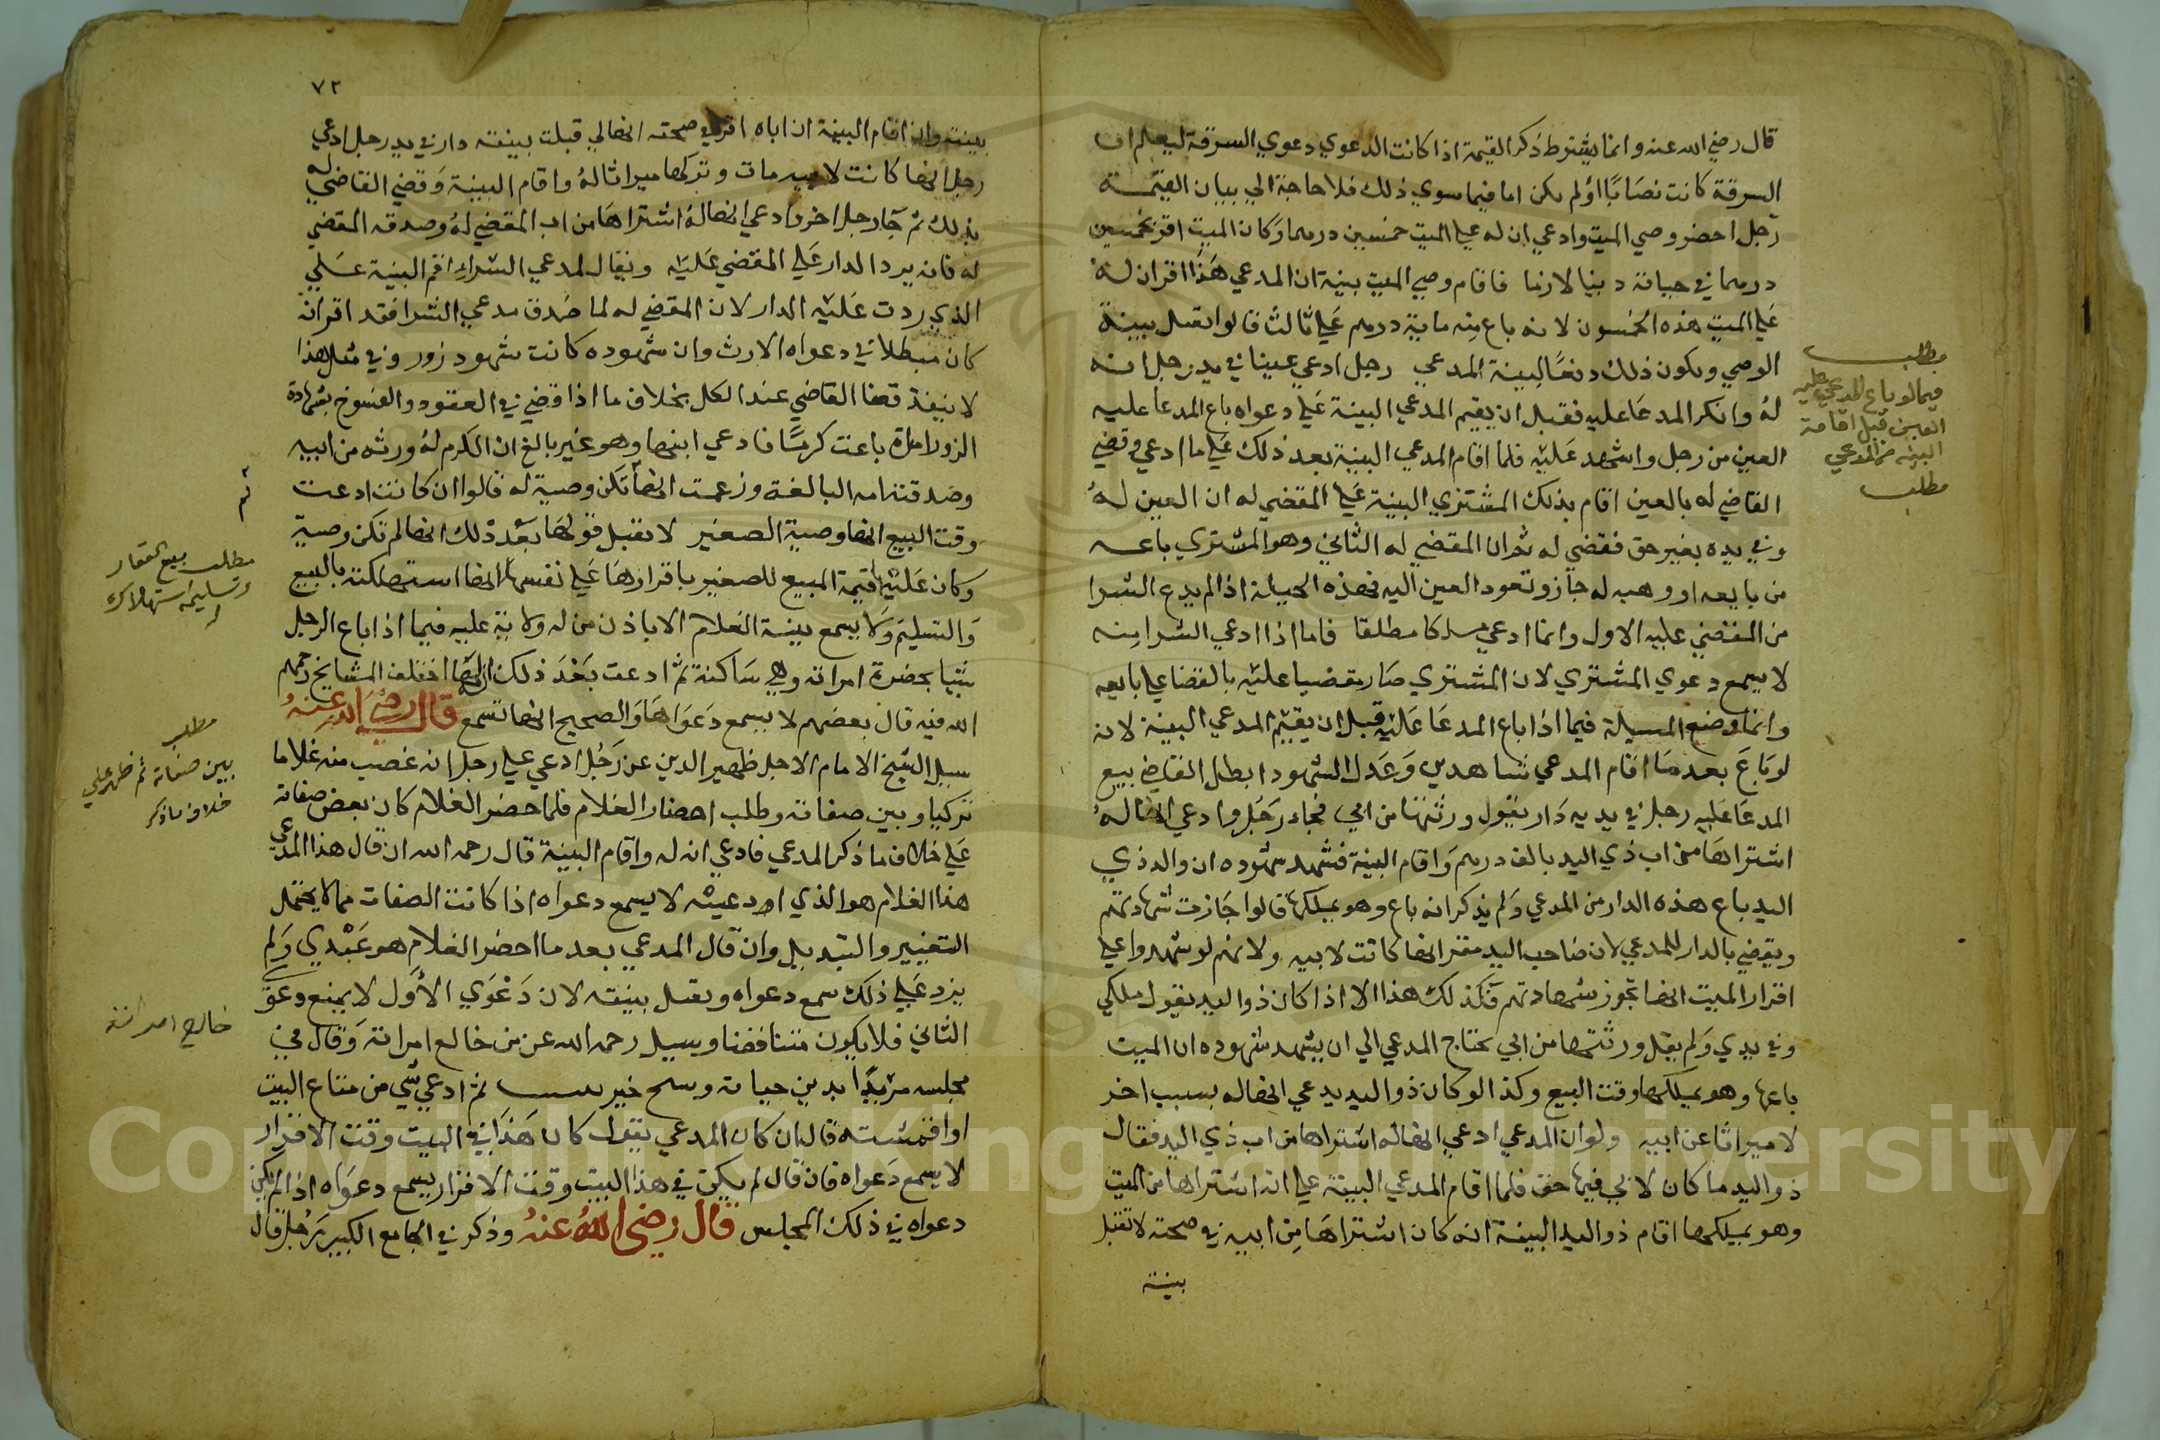 قال رضي الله عنه وانما يشترط ذكر القيمة اذا كانت الدعوي دعوي السرقة ليعلم ان
السرقة كانت نصابا او لم تكن اما فيما سوي ذلك فلا حاجة الي بيان القيمة
رجل احضر وصي الميت وادعي ان له علي الميت خمسين درهما وكان الميت اقر بخمسين
درهما في حياته دينا لازما فاقام وصي الميت بينة ان المدعي هذا اقر ان له
علي الميت هذه الخمسون لانه باع منه ماية درهم علي ثالث قالوا تقبل بينة
الوصي ويكون ذلك دفعا لبينة المدعي رجل ادعي عينا في يد رجل انه
له وانكر المدعا عليه فقبل ان يقيم المدعي البينة علي دعواه باع المدعا عليه
العين من رجل واشهد عليه فلما اقام المدعي البينة بعد ذلك علي ما ادعي وقضي
القاضي له بالعين اقام بذلك المشتري البينة علي المقضي له ان العين له
وفي يده بغير حق فقضي له ثم ان المقضي له الثاني وهو المشتري باعه
من بايعه او وهبه له جاز وتعود العين اليه فهذه الحيلة اذا لم يدع الشرا
من المقضي عليه الاول وانما ادعي ملكا مطلقا فاما اذا ادعي الشرا منه
لا يسمع دعوي المشتري لان المشتري صار مقضيا عليه بالقضا علي بايعه
وانما وضع المسيلة فيما اذا باع المدعا عليه قبل ان يقيم المدعي البينة لانه
لو باع بعد ما اقام المدعي شاهدين وعدل الشهود ابطل القاضي بيع
المدعا عليه رجل في يديه دار يقول ورثتها من ابي فجاء رجل وادعي انها له
اشتراها من اب ذي اليد بالف درهم واقام البينة فشهد شهوده ان والد ذي
اليد باع هذه الدار من المدعي ولم يذكر انه باع وهو يملكها قالوا جازت شهادتهم
ويقضي بالدار للمدعي لان صاحب اليد مقر انها كانت لابيه ولانهم لو شهدوا علي
اقرار الميت انها تجوز شهادتهم فكذلك هذا الا اذا كان ذو اليد يقول ملكي
وفي يدي ولم يقل ورثتها من ابي يحتاج المدعي الي ان يشهد شهوده ان الميت
باعها وهو يملكها وقت البيع وكذا لو كان ذو اليد يدعي انها له بسبب اخر
لا ميراثا عن ابيه ولو ان المدعي ادعي انها له اشتراها من اب ذي اليد فقال
ذو اليد ما كان لابي فيها حق فلما اقام المدعي البينة علي انه اشتراها من الميت
وهو يملكها اقام ذو اليد البينة انه كان اشتراها من ابيه في صحته لا تقبل
بينة
مطلب
فيما لو باع المدعي عليه
العين قبل اقامة
البينة من المدعي
مطلب
٧٢
بينته وان اقام البينة ان اباه اقر في صحته انها لي قبلت بينته دار في يد رجل ادعي
رجل انها كانت لابيه مات وتركها ميراثا له واقام البينة وقضي القاضي له
بذلك ثم جا رجل اخر وادعي انها له اشتراها من اب المقضي له وصدقه المقضي
له فانه يرد الدار علي المقضي عليه ويقال لمدعي الشراء اقم البينة علي
الذي ردت عليه الدار لان المقضي له لما صدق مدعي الشرا فقد اقر انه
كان مبطلا في دعواه الارث وان شهوده كانت شهود زور وفي مثل هذا
لا ينفذ قضا القاضي عند الكل بخلاف ما اذا قضي في العقود والفسوخ بشهادة
الزور امراة باعت كرما فادعي ابنها وهو غير بالغ ان الكرم له ورثه من ابيه
وصدقته امه البالغة وزعمت انها لم تكن وصية له قالوا ان كانت ادعت
وقت البيع انها وصية الصغير لا تقبل قولها بعد ذلك انها لم تكن وصية
وكان عليها قيمة المبيع للصغير باقرارها علي نفسها انها استهلكته بالبيع
والتسليم ولا يسمع بينة الغلام الا باذن من له ولاية عليه فيما اذا باع الرجل
شيا بحضرة امراته وهي ساكتة ثم ادعت بعد ذلك انه لها اختلف المشايخ رحمهم
الله فيه قال بعضهم لا يسمع دعواها والصحيح انها تسمع قال رضي الله عنه
سيل الشيخ الامام الاجل ظهير الدين عن رجل ادعي علي رجل انه غصب منه غلاما
تركيا وبين صفاته وطلب احضار الغلام فلما حضر الغلام كان بعض صفاته
علي خلاف ما ذكر المدعي فادعي انه له واقام البينة قال رحمه الله ان قال هذا المدعي
هذا الغلام هو الذي ادعيته لا يسمع دعواه اذا كانت الصفات مما لا يحتمل
التغيير والتبديل وان قال المدعي بعد ما احضر الغلام هو عبدي ولم
يزد علي ذلك سمع دعواه وتقبل بينته لان دعوي الاول لا يمنع دعوي
الثاني فلا يكون متناقضا وسيل رحمه الله عن من خالع امراته وقال في
مجلسه ثم ادعي شي من متاع البيت
قال ان كان المدعي يقول كان هذا في البيت وقت الاقرار
لا يسمع دعواه فان قال لم يكن في هذا البيت وقت الاقرار يسمع دعواه اذا لم يكن
دعواه في ذلك المجلس قال رضي الله عنه وذكر في الجامع الكبير رجل قال
مطلب بيع العقار
وتسليمه استهلاك
مطلب
بين صفاته ثم ظهر علي
خلاف ما ذكر
خالع امراته
Copyright © King Saud University